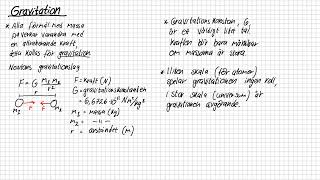 Gravitation
* Alla föremål med massa
påverkar varandra med
en attraherande kraft,
den kallas för gravitation
Newtons gravitationslag
F = G m1 m2 / r²
F = kraft (N)
G = gravitationskonstanten
= 6,6726·10⁻¹¹ Nm²/kg²
m1 = massa (kg)
m2 = -11-
r = avståndet (m)
r
F F
m1 m2
* Gravitations konstanten, G,
är ett väldigt litet tal
kraften blir bara märkbar
om massorna är stora.
* I liten skala (för atomer)
spelar gravitationen ingen roll,
I stor skala (universum) är
gravitationen avgörande.